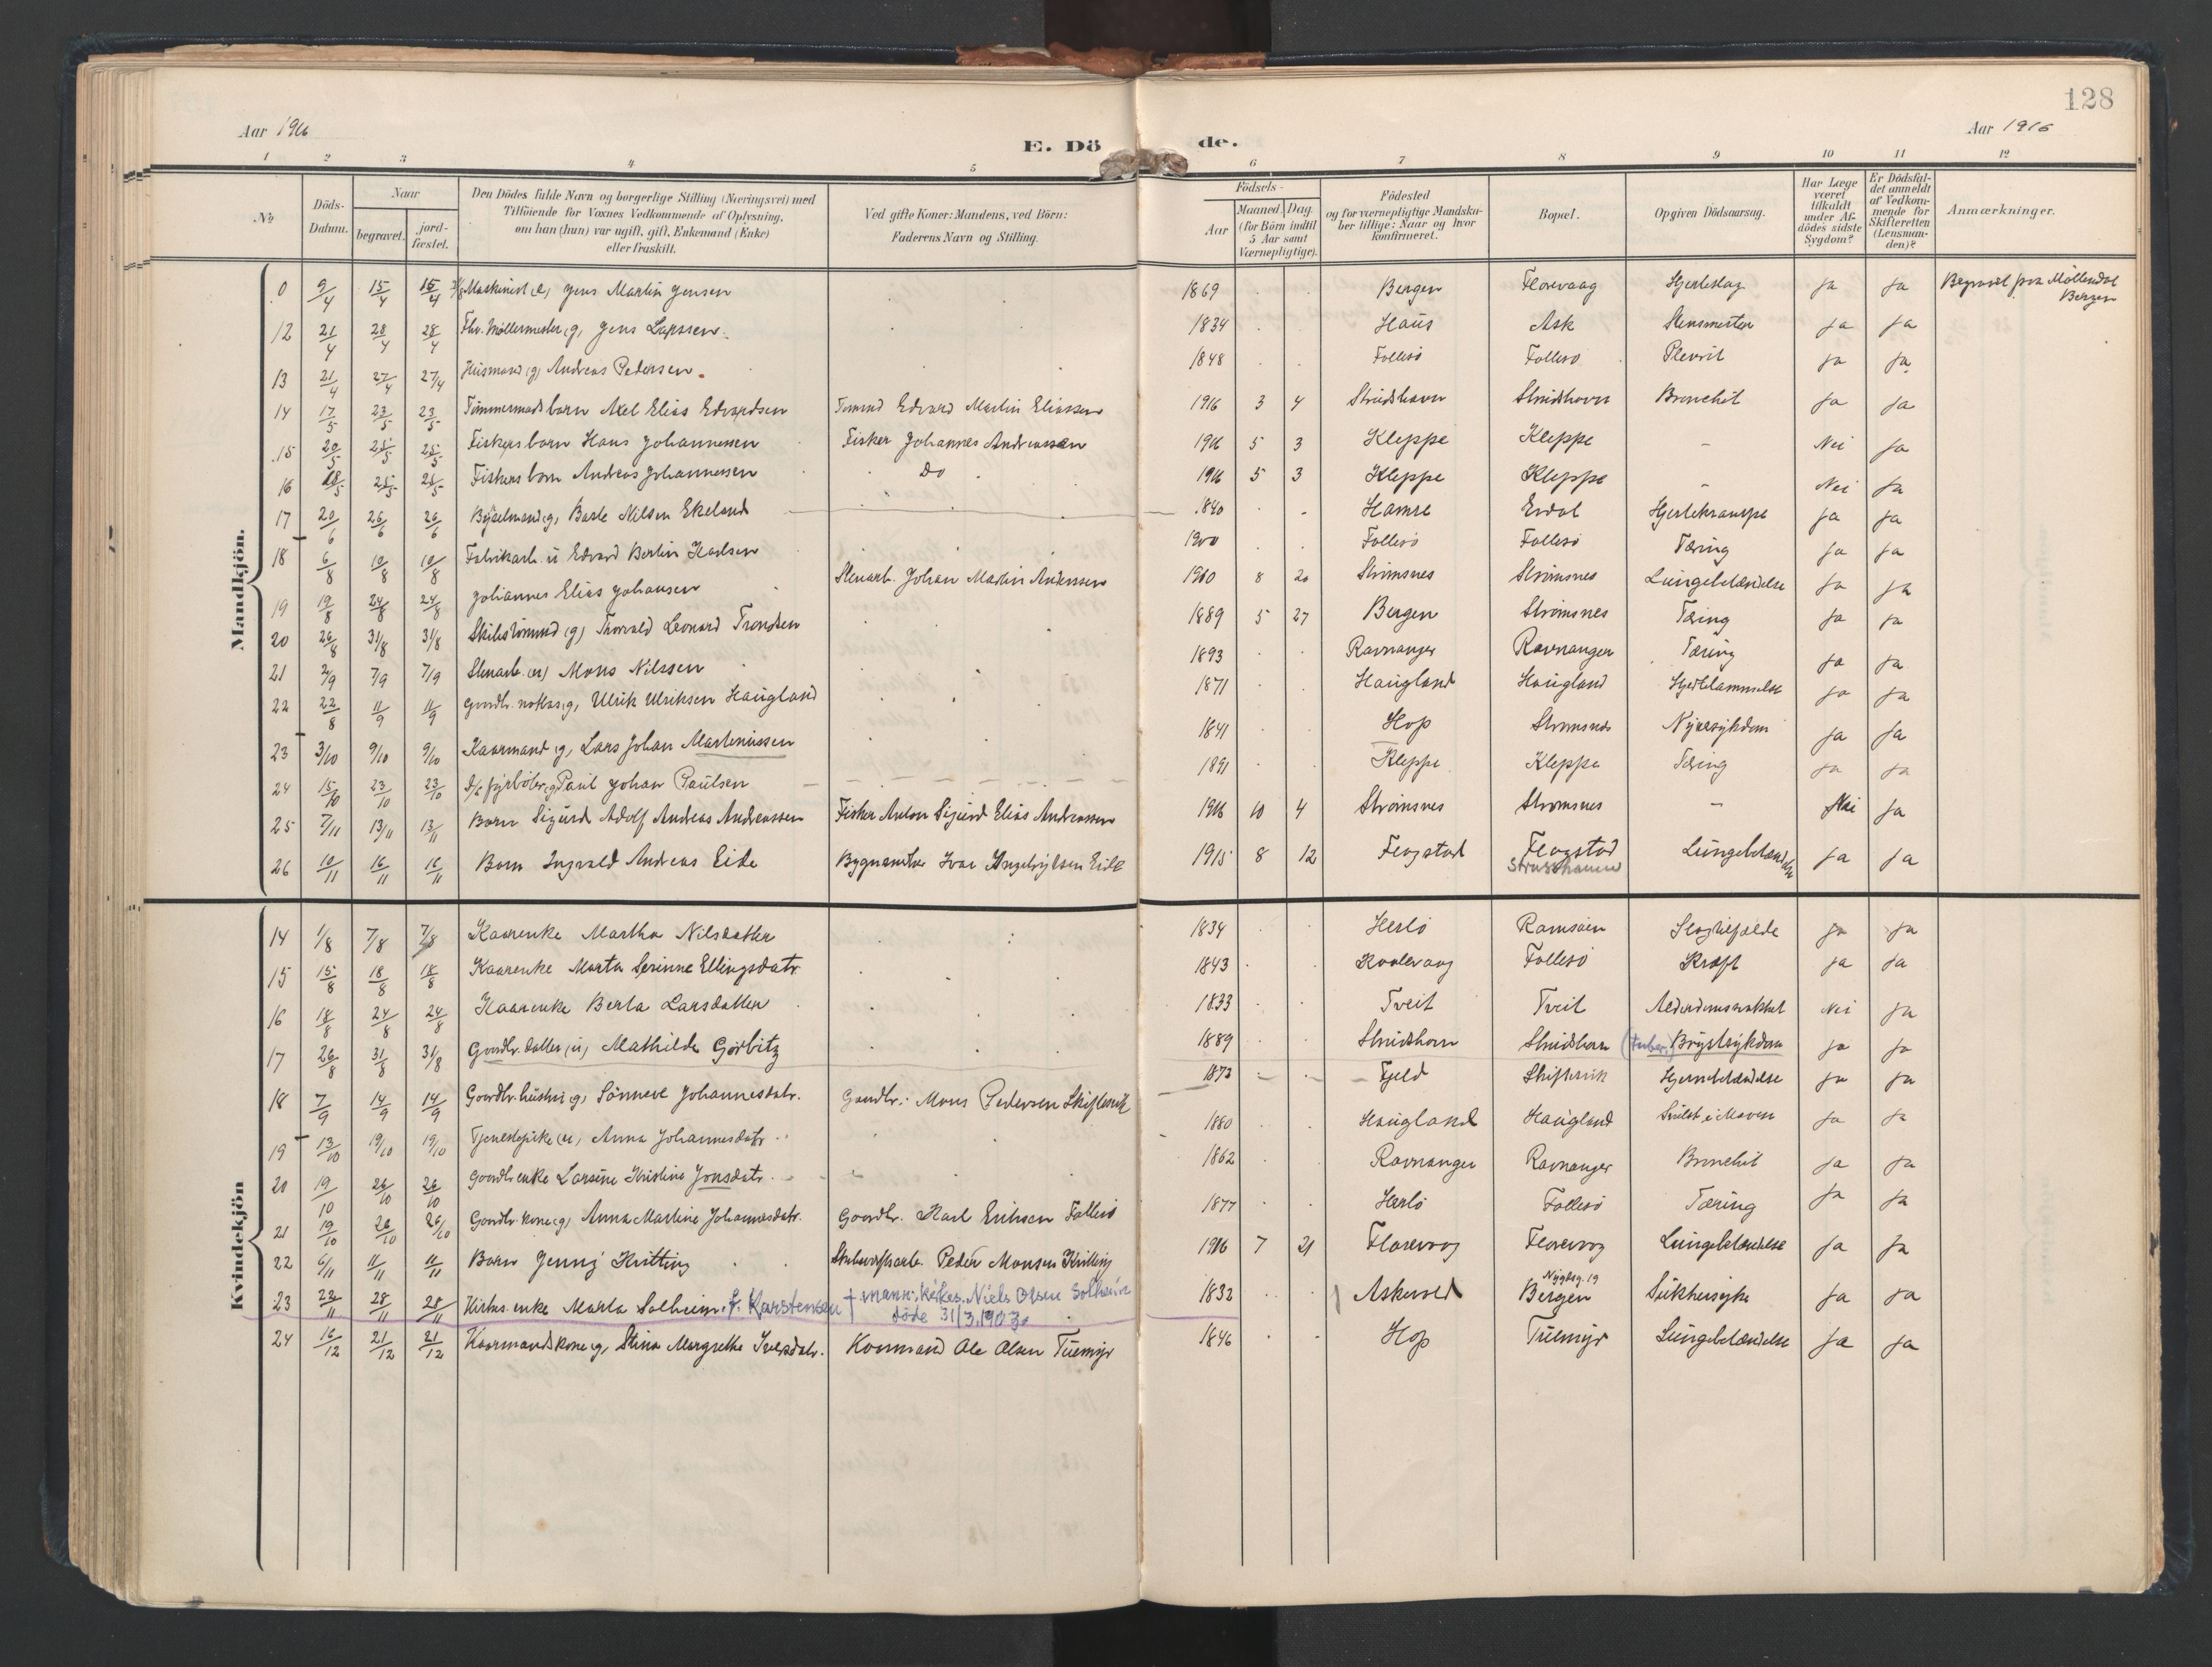 128
Aar 1916
E. Dö de.
Aar 1916
1 2 3 4 5 6 7 8 9 10 11 12
№
Döds-Datum.
Naar
begravet.
jord-fæstet.
Den Dödes fulde Navn og borgerlige Stilling (Næringsvei) med
Tilföiende for Voxnes Vedkommende af Oplysning,
om han (hun) var ugift, gift, Enkemand (Enke)
eller fraskilt.
Ved gifte Koner: Mandens, ved Börn:
Faderens Navn og Stilling.
Födsels-
Aar
Maaned. Dag.
(for Börn indtil
5 Aar samt
Værnepligtige).
Födested
og for værnepligtige Mandska-
ber tillige: Naar og hvor
konfirmeret.
Bopæl.
Opgiven Dödsaarsag.
Har Læge
været
tilkaldt
under Af-
dödes sidste
Sygdom?
Er Dödsfal-
det anmeldt
af Vedkom-
mende for
Skifteretten
(Lensman-
den)?
Anmærkninger.
Mandkjön.
0 9/4 15/4 15/4 Maskinist Jens Martin Jensen 1869 Bergen Florevaag Hjerteslag Ja Ja Begravet fra Möllendal Bergen
12 21/4 28/4 28/4 Fhv. Möllermester (g) Jens Larssen 1834 Haus Ask Ja Ja
13 21/4 27/4 27/4 Husmand (g) Andreas Pedersen 1848 Follesö Follesö Plevrit Ja Ja
14 17/5 23/5 23/5 Tömmermads barn Axel Elias Edvardsen Tömmd Edvard Martin Eliassen 1916 3 4 Strudshavn Strudshavn Bronchit Ja Ja
15 20/5 25/5 25/5 Fiskers barn Hans Johannessen Fisker Johannes Andreassen 1916 5 3 Kleppe Kleppe - Nei Ja
16 25/5 25/5 Fiskers barn Andreas Johannessen Do 1916 5 3 Kleppe Kleppe - Nei Ja
17 20/6 26/6 26/6 (g) Nilsen Ekeland 1840 Hamre Erdal Hjertekrampe Ja Ja
18 6/8 10/8 10/8 Fabrikarb. u Edvard Bertin Karlsen 1900 Follesö Follesö Tæring Ja Ja
19 19/8 24/8 24/8 Johannes Elias Johansen Stenarb. Johan Martin Andersen 1910 8 20 Strömsnes Strömsnes Lungebetændelse Ja Ja
20 26/8 31/8 31/8 (g) Thorvald Leonard Trondsen 1889 5 27 Bergen Strömsnes Tæring Ja Ja
21 2/9 7/9 7/9 Stenarb. (u) Mons Nilssen 1893 Ravnanger Ravnanger Tæring Ja Ja
22 22/8 11/9 11/9 Gaardbr. (g) Ulrik Ulriksen Haugland 1871 Haugland Haugland Hjertelammelse Ja Ja
23 3/10 9/10 9/10 Kaarmand (g) Lars Johan Martinussen 1841 Hop Strömsnes Nyresykdom Ja Ja
24 15/10 23/10 23/10 D/s fyrböter (g) Paul Johan Paulsen 1891 Kleppe Kleppe Tæring Ja Ja
25 7/11 13/11 13/11 Barn Sigurd Adolf Andreas Andreassen Fisker Anton Sigurd Elias Andreassen 1916 10 4 Strömsnes Strömsnes - Nei Ja
26 10/11 16/11 16/11 Barn Ingvald Andreas Eide Ivar Eide 1915 8 12 Flagstad Flagstad Strusshamn Lungebetændelse Ja Ja
Kvindekjön
14 1/8 7/8 7/8 Kaarenke Martha Nilsdatter 1834 Herlö Ramsöen Slagtilfælde Ja Ja
15 15/8 18/8 18/8 Kaarenke Marta Serinne Ellingsdatr. 1843 Follesö Kræft Ja Ja
16 18/8 24/8 24/8 Kaarenke Berta Larsdatter 1833 Tveit Tveit Alderdomssvakhet Nei Ja
17 26/8 31/8 31/8 Gaardbr. datter (u) Mathilde Görbitz 1889 Strudshavn Strudshavn (tuber.) Brystsykdom Ja Ja
18 7/9 14/9 14/9 Gaardbr. hustru (g) Sönneve Johannesdatr. Gaardbr. Mons Pedersen Skiftesvik 1873 Fjeld Skiftesvik Hjernebetændelse Ja Ja
19 13/10 19/10 19/10 Tjenestepike (u) Anna Johannesdatr. 1880 Haugland Haugland Svulst i Maven Ja Ja
20 19/10 26/10 26/10 Gaardbrenke Larsine Kristine Jonsdatr. 1862 Ravnanger Ravnanger Bronchit Ja Ja
21 19/10 26/10 26/10 Gaardbr. kone (g) Anna Martine Johannesdatr. Gaardbr. Karl Eriksen Follesö 1877 Herlö Follesö Tæring Ja Ja
22 6/11 11/11 11/11 Barn Jenny Knitting Peder Monsen Knitting 1916 7 21 Florevaag Florevaag Lungebetændelse Ja Ja
23 22/11 28/11 28/11 Kirkes. enke Marta Solheim. f. Karstensen † mann: Kirkes. Niels Olsen Solheim döde 31/3.1903. 1832 Askevold Nygårdsg. 19 Bergen Sukkersyke Ja Ja
24 16/12 21/12 21/12 Kaarmandskone (g) Stina Margrethe Iversdatr. Kaarmand Ole Olsen Tuemyr 1846 Hop Tuemyr Lungebetændelse Ja Ja